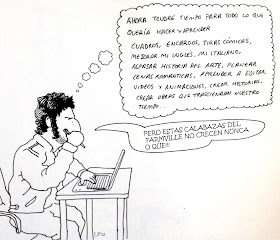 AHORA TENDRÉ TIEMPO PARA TODO LO QUE
QUERÍA HACER Y APRENDER
CUADROS, ENCARGOS, TIRAS CÓMICAS,
MEJORAR MI INGLÉS, MI ITALIANO.
REPASAR HISTORIA DEL ARTE, PLANEAR
CENAS ROMANTICAS, APRENDER A EDITAR
VIDEOS Y ANIMACIONES, CREAR HISTORIAS.
CREAR OBRAS QUE TRASCIENDAN NUESTRO
TIEMPO.
PERO ESTAS CALABAZAS DEL
FARMVILLE NO CRECEN NUNCA
O QUE!!